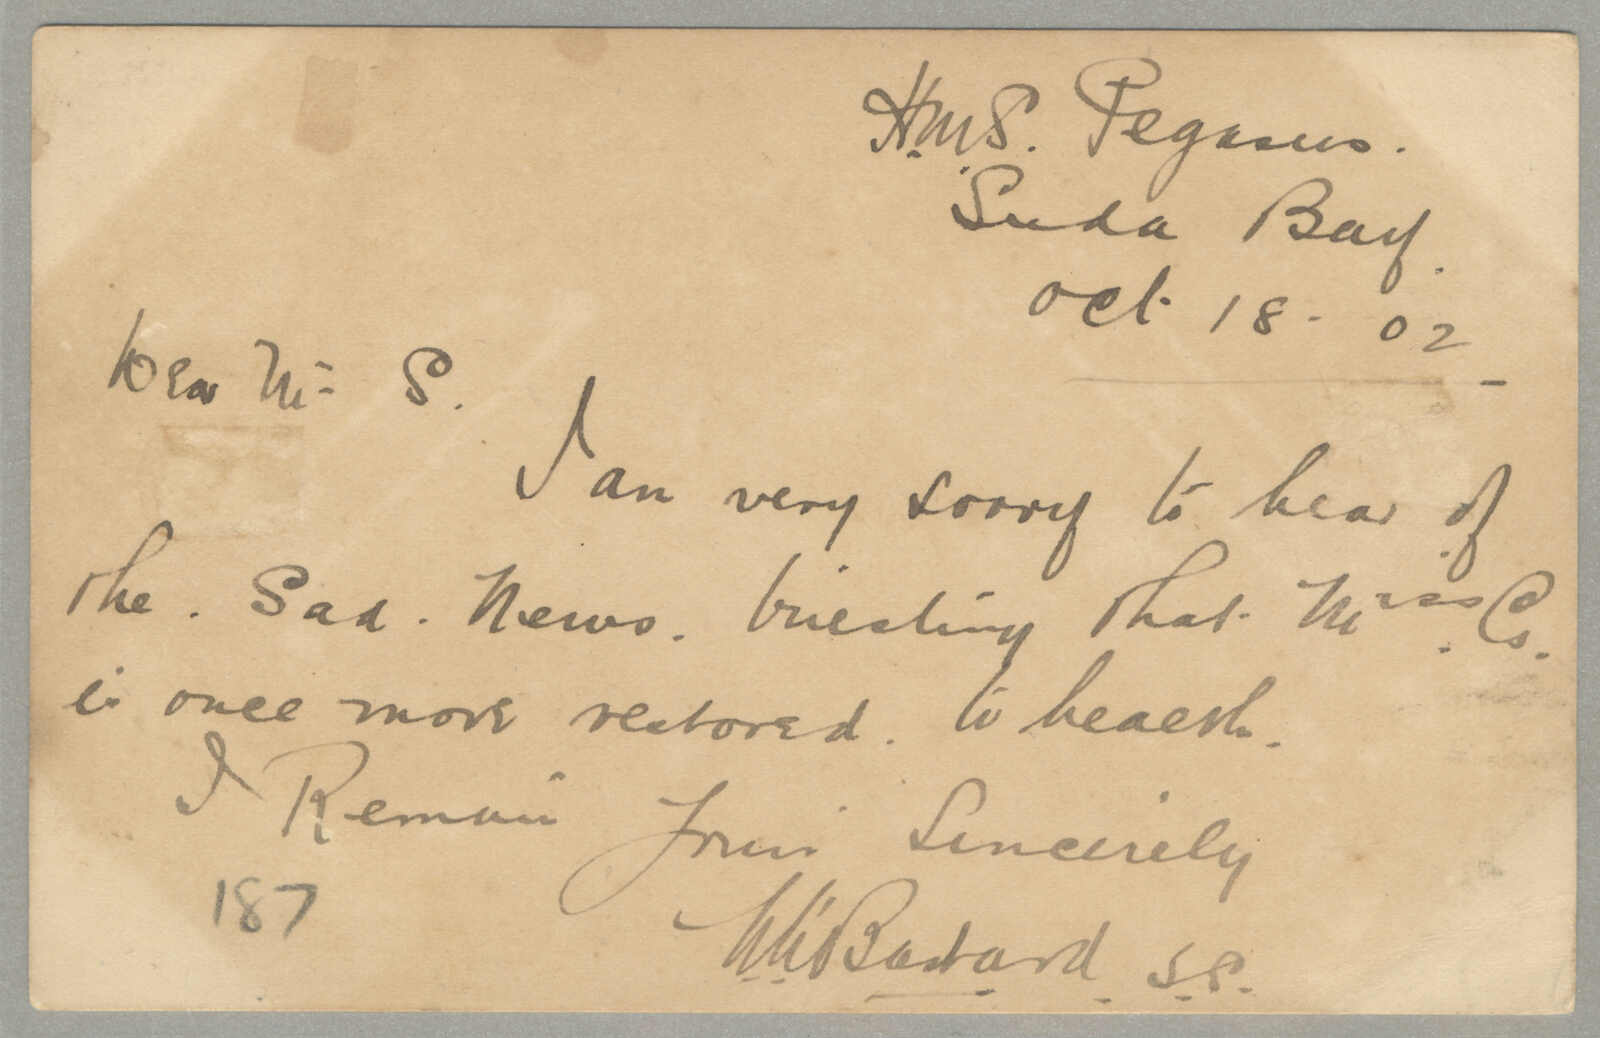 H.M.S. Pegasus.
Suda Bay.
Oct. 18. 02
Dear Mr S.
I am very sorry to hear of
the. Sad. News. trusting that Miss Cs.
is once more restored. to health.
I Remain Yours Sincerely
Bastard S.S.
187